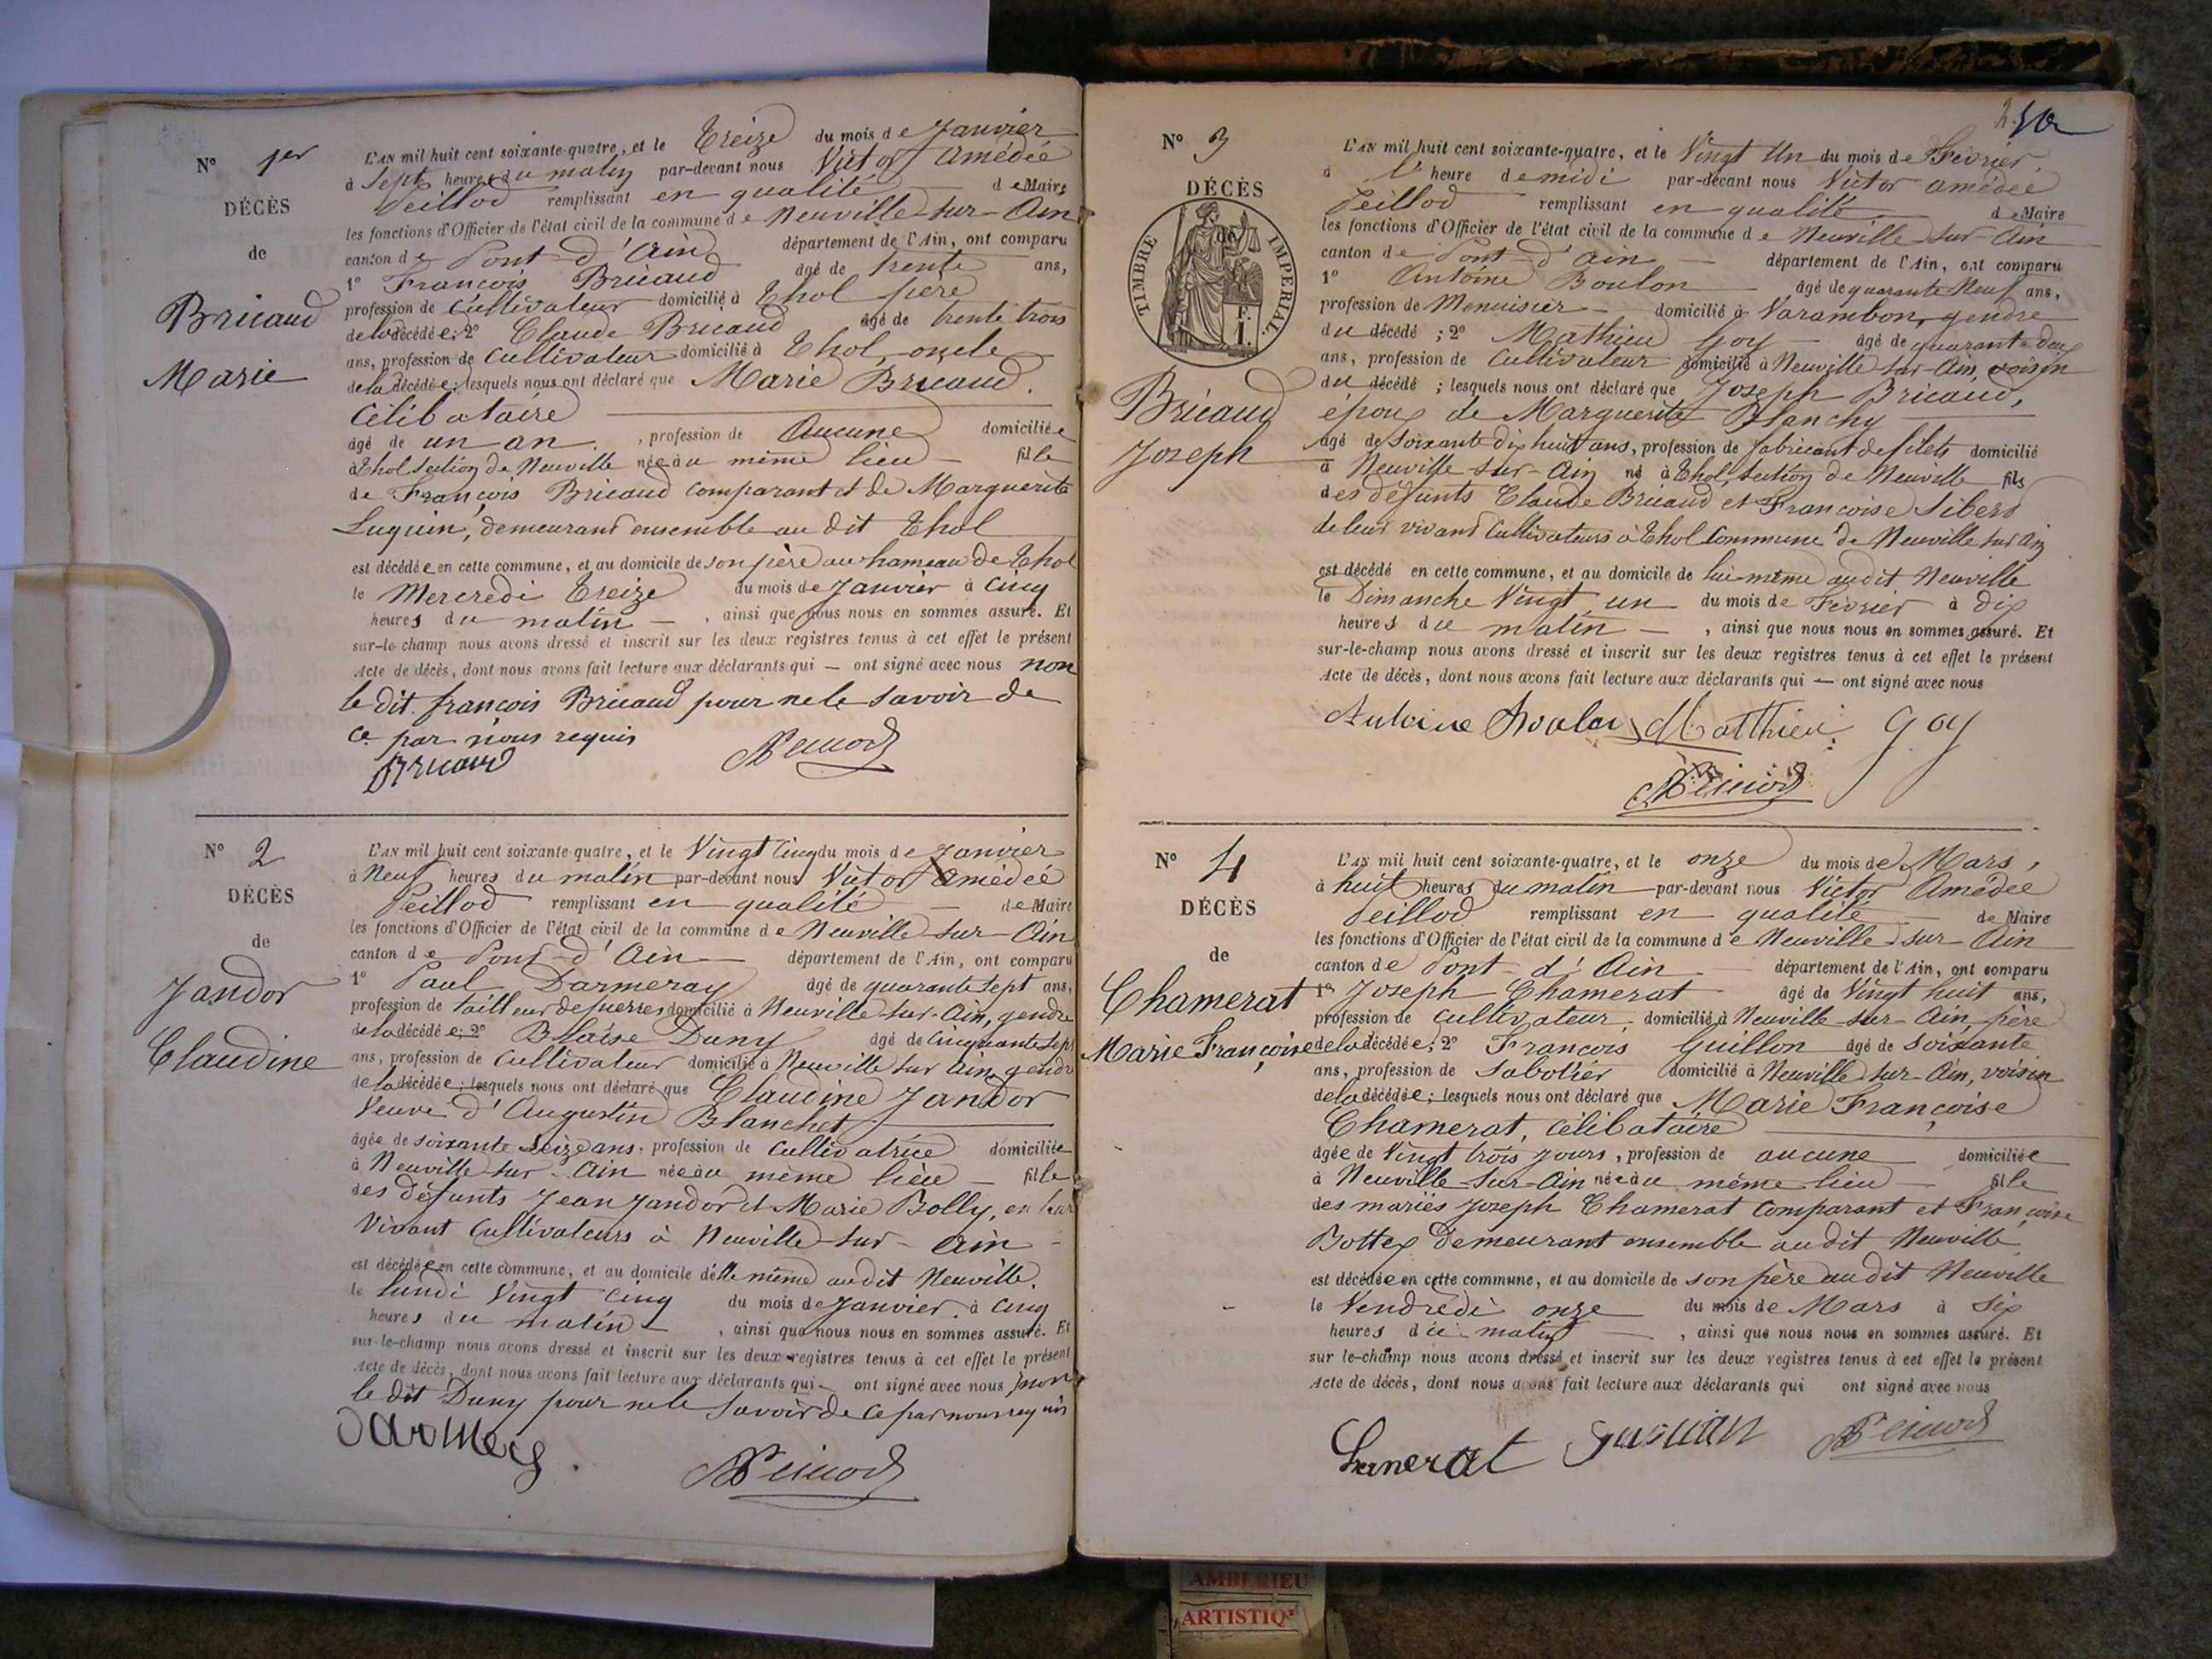 N° 1er
DÉCÈS
de
Bricaud
Marie
L'AN mil huit cent soixante-quatre, et le Treize du mois de Janvier
à Sept heures du matin par-devant nous Victor Amédée
Peillod remplissant en qualité de Maire
les fonctions d'Officier de l'état civil de la commune de Neuville-sur-Ain
canton de Pont-d'Ain département de l'Ain, ont comparu
1° François Bricaud âgé de trente ans,
profession de Cultivateur domicilié à Thol père
de la décédée; 2° Claude Bricaud âgé de trente trois
ans, profession de Cultivateur domicilié à Thol, oncle
de la décédée; lesquels nous ont déclaré que Marie Bricaud.
Célibataire
âgé de un an , profession de Aucune domiciliée
à Thol section de Neuville née au même lieu fille
de François Bricaud comparant et de Marguerite
Luquin, demeurant ensemble au dit Thol
est décédée en cette commune, et au domicile de son père au hameau de Thol
le Mercredi Treize du mois de Janvier à Cinq
heures du matin , ainsi que nous nous en sommes assuré. Et
sur-le-champ nous avons dressé et inscrit sur les deux registres tenus à cet effet le présent
Acte de décès, dont nous avons fait lecture aux déclarants qui — ont signé avec nous non
le dit françois Bricaud pour ne le savoir de
ce par nous requis
Bricaud
N° 2
DÉCÈS
de
Jandor
Claudine
L'AN mil huit cent soixante-quatre, et le Vingt Cinq du mois de Janvier
à Neuf heures du matin par-devant nous Victor Amédée
Peillod remplissant en qualité de Maire
les fonctions d'Officier de l'état civil de la commune de Neuville-sur-Ain
canton de Pont-d'Ain département de l'Ain, ont comparu
1° Paul Darmeray âgé de quarante sept ans,
profession de tailleur de pierres domicilié à Neuville-sur-Ain, gendre
de la décédée; 2° Blaise Duny âgé de Cinquante Sept
ans, profession de Cultivateur domicilié à Neuville sur Ain, gendre
de la décédée; lesquels nous ont déclaré que Claudine Jandor
Veuve d'Augustin Blanchet
âgée de soixante Seize ans, profession de Cultivatrice domiciliée
à Neuville sur-Ain née au même lieu fille
des défunts Jean Jandor et Marie Bolly, en leur
Vivant Cultivateurs à Neuville-sur-Ain
est décédée en cette commune, et au domicile d'elle même audit Neuville.
le lundi Vingt Cinq du mois de Janvier à Cinq
heures du matin , ainsi que nous nous en sommes assuré. Et
sur-le-champ nous avons dressé et inscrit sur les deux registres tenus à cet effet le présent
Acte de décès, dont nous avons fait lecture aux déclarants qui — ont signé avec nous non
le dit Duny pour ne le savoir de ce par nous requis
N° 3
DÉCÈS
de
TIMBRE IMPERIAL
Bricaud
Joseph
L'AN mil huit cent soixante-quatre, et le Vingt Un du mois de Février
à 1 heure de midi par-devant nous Victor Amédée
Peillod remplissant en qualité de Maire
les fonctions d'Officier de l'état civil de la commune de Neuville-sur-Ain
canton de Pont-d'Ain département de l'Ain, ont comparu
1° Antoine Boulon âgé de quarante Neuf ans,
profession de Menuisier domicilié à Varambon, gendre
du décédé ; 2° Mathieu Goy âgé de quarante Deux
ans, profession de Cultivateur domicilié à Neuville-sur-Ain, voisin
du décédé ; lesquels nous ont déclaré que Joseph Bricaud,
époux de Marguerite Blanchy
âgé de soixante dix huit ans, profession de fabricant de filets domicilié
à Neuville-sur-Ain né à Thol, Section de Neuville fils
des défunts Claude Bricaud et Françoise Sibert
de leur vivant Cultivateurs à Thol Commune de Neuville sur Ain
est décédé en cette commune, et au domicile de lui-même audit Neuville
le Dimanche Vingt un du mois de Février à dix
heures du matin , ainsi que nous nous en sommes assuré. Et
sur-le-champ nous avons dressé et inscrit sur les deux registres tenus à cet effet le présent
Acte de décès, dont nous avons fait lecture aux déclarants qui — ont signé avec nous
Antoine Boulon Matthieu Goy
N° 4
DÉCÈS
de
Chamerat
Marie Françoise
L'AN mil huit cent soixante-quatre, et le onze du mois de Mars,
à huit heures du matin par-devant nous Victor Amédée
Peillod remplissant en qualité de Maire
les fonctions d'Officier de l'état civil de la commune de Neuville-sur-Ain
canton de Pont-d'Ain département de l'Ain, ont comparu
1° Joseph Chamerat âgé de Vingt huit ans,
profession de Cultivateur, domicilié à Neuville-sur-Ain, père
de la décédée; 2° François Guillon âgé de soixante
ans, profession de Sabotier domicilié à Neuville-sur-Ain, voisin
de la décédée; lesquels nous ont déclaré que Marie Françoise
Chamerat, célibataire
âgée de Vingt trois Jours, profession de aucune domiciliée
à Neuville-sur-Ain née au même lieu fille
des mariés Joseph Chamerat Comparant et Françoise
Bottex Demeurant ensemble audit Neuville
est décédée en cette commune, et au domicile de son père audit Neuville
le Vendredi onze du mois de Mars à Six
heures du matin , ainsi que nous nous en sommes assuré. Et
sur le-champ nous avons dressé et inscrit sur les deux registres tenus à cet effet le présent
Acte de décès, dont nous avons fait lecture aux déclarants qui ont signé avec nous
AMBERIEU
ARTISTIQ